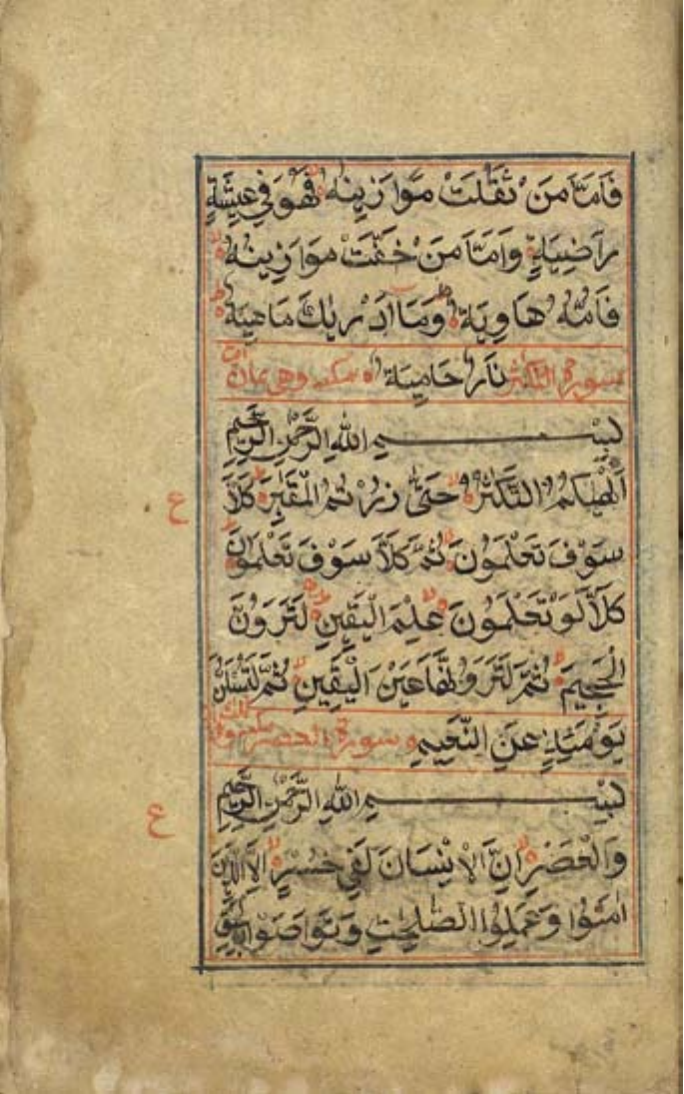 فَاَمَّا مَنْ ثَقُلَتْ مَوَازِينُهُ فَهُوَ فِي عِيشَةٍ
رَاضِيَةٍ وَاَمَّا مَنْ خَفَّتْ مَوَازِينُهُ
فَاُمُّهُ هَاوِيَةٌ وَمَا اَدْرٰيكَ مَاهِيَهْ
سورة التكاثر نَارٌ حَامِيَةٌ مكية وهي ثمان
بِسْمِ اللهِ الرَّحْمٰنِ الرَّحِيمِ
اَلْهٰىكُمُ التَّكَثُرُ حَتّٰى زُرْتُمُ الْمَقَبِرَ كَلَّا
ع
سَوْفَ تَعْلَمُونَ ثُمَّ كَلَّا سَوْفَ تَعْلَمُونَ
كَلَّا لَوْ تَعْلَمُونَ عِلْمَ الْيَقِينِ لَتَرَوُنَّ
الْجَحِيمَ ثُمَّ لَتَرَوُنَّهَا عَيْنَ الْيَقِينِ ثُمَّ لَتُسْئَلُنَّ
يَوْمَئِذٍ عَنِ النَّعِيمِ سورة العصر
بِسْمِ اللهِ الرَّحْمٰنِ الرَّحِيمِ
ع
وَالْعَصْرِ اِنَّ الْاِنْسَانَ لَفِي خُسْرٍ اِلَّا الَّذِينَ
اٰمَنُوا وَعَمِلُوا الصّٰلِحٰتِ وَتَوَاصَوْا بِالْحَقِّ